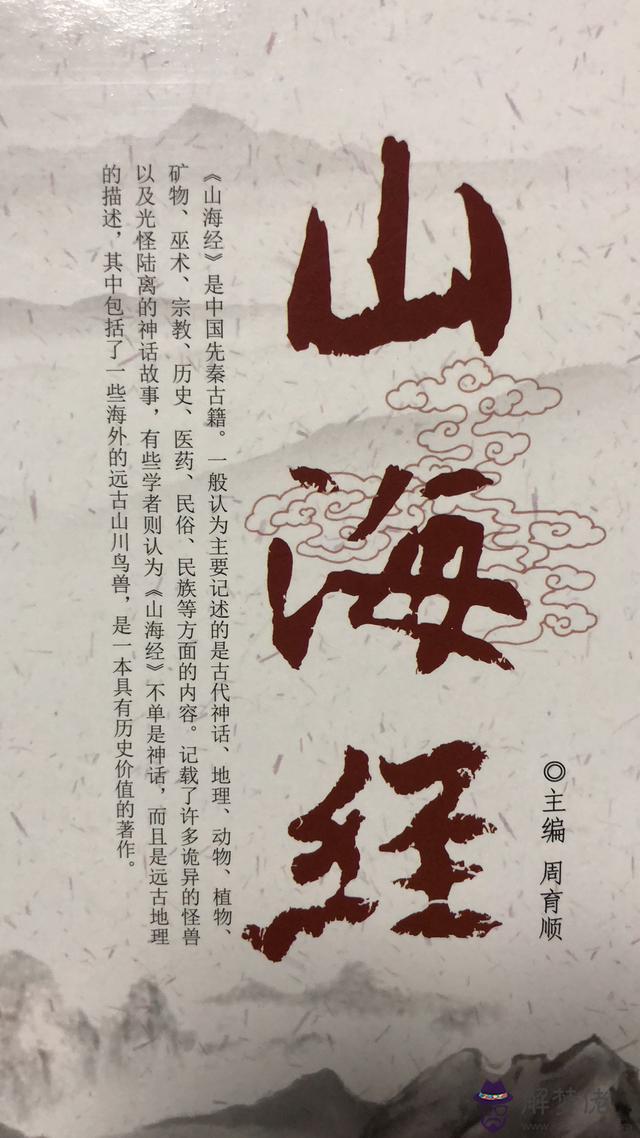 ◎主编 周育顺
山海经
《山海经》是中国先秦古籍。一般认为主要记述的是古代神话、地理、动物、植物、
矿物、巫术、宗教、历史、医药、民俗、民族等方面的内容。记载了许多诡异的怪兽
以及光怪陆离的神话故事，有些学者则认为《山海经》不单是神话，而且是远古地理
的描述，其中包括了一些海外的远古山川鸟兽，是一本具有历史价值的著作。
解梦佬